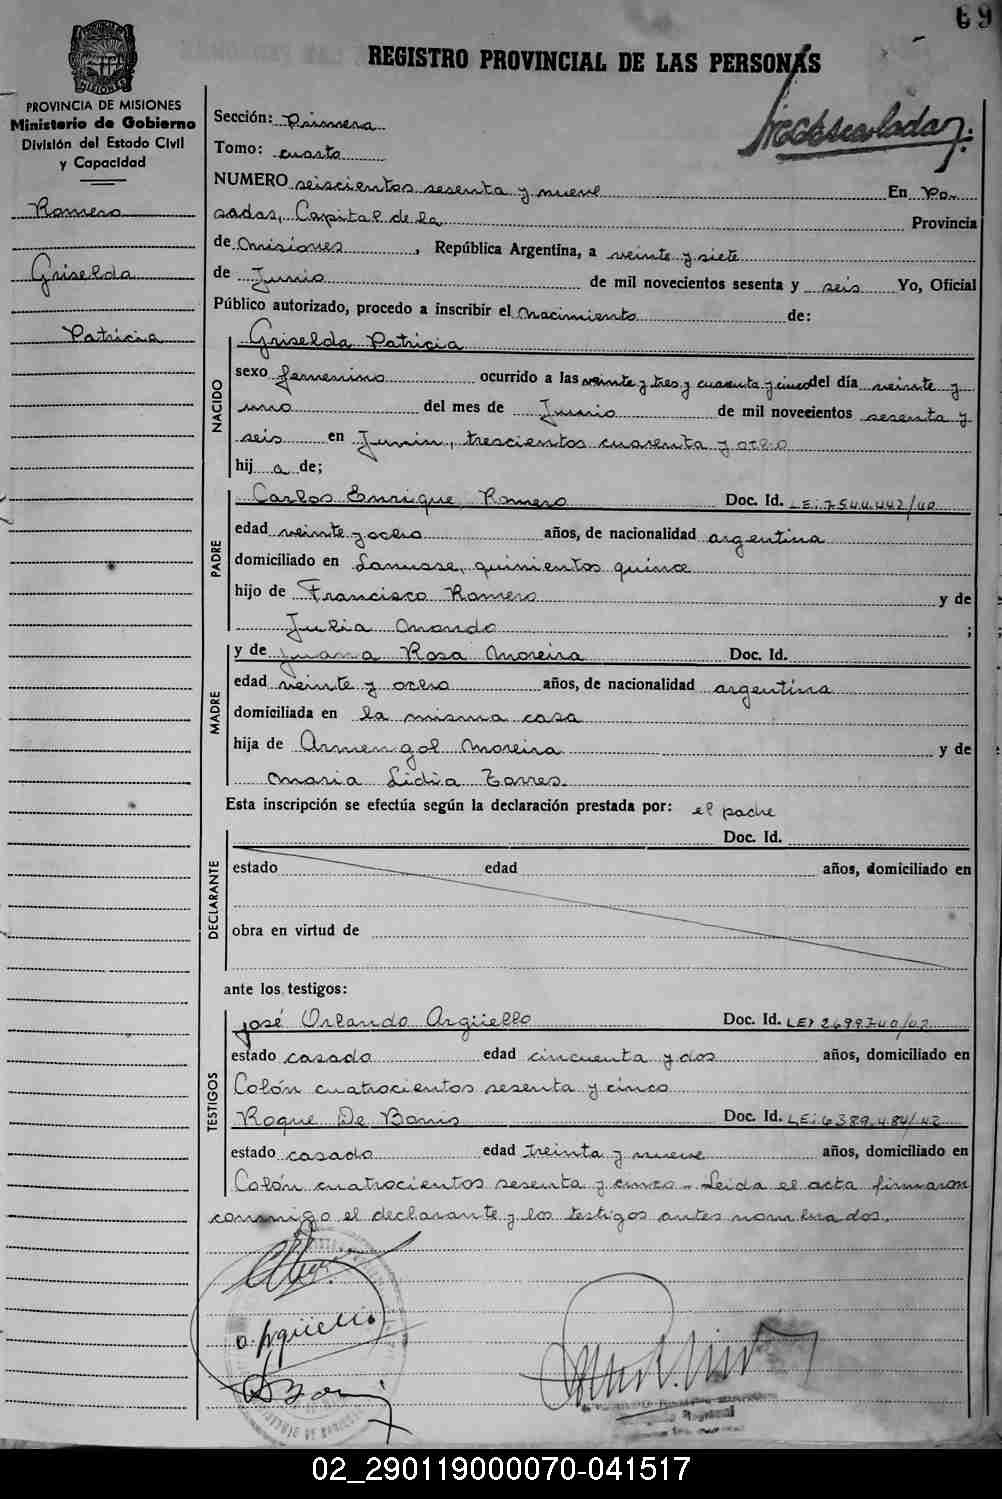 69
REGISTRO PROVINCIAL DE LAS PERSONAS
PROVINCIA DE MISIONES
Ministerio de Gobierno
División del Estado Civil
y Capacidad
Romero
Griselda
Patricia
Sección: Primera
Tomo: cuarto
NUMERO seiscientos sesenta y nueve En Po-
sadas, Capital de la Provincia
de Misiones, República Argentina, a veinte y siete
de Junio de mil novecientos sesenta y seis Yo, Oficial
Público autorizado, procedo a inscribir el Nacimiento de:
NACIDO
Griselda Patricia
sexo femenino ocurrido a las veinte y tres y cuarenta y cinco del día veinte y
uno del mes de Junio de mil novecientos sesenta y
seis en Junin, trescientos cuarenta y ocho
hij a de;
PADRE
Carlos Enrique Romero Doc. Id. LE: 7544.442/40
edad veinte y ocho años, de nacionalidad argentina
domiciliado en Lanusse, quinientos quince
hijo de Francisco Romero y de
Julia ;
MADRE
y de Juana Rosa Moreira Doc. Id.
edad veinte y ocho años, de nacionalidad argentina
domiciliada en la misma casa
hija de Armengol Moreira y de
Maria Lidia Torres.
Esta inscripción se efectúa según la declaración prestada por: el padre
DECLARANTE
Doc. Id.
estado edad años, domiciliado en
obra en virtud de
ante los testigos:
TESTIGOS
José Orlando Argüello Doc. Id. LE: 2699740/02
estado casado edad cincuenta y dos años, domiciliado en
Colón cuatrocientos sesenta y cinco
Roque De Bonis Doc. Id. LE: 6389.484/42
estado casado edad treinta y nueve años, domiciliado en
Colón cuatrocientos sesenta y cinco - Leida el acta firmaron
conmigo el declarante y los testigos antes nombrados.
02_290119000070-041517